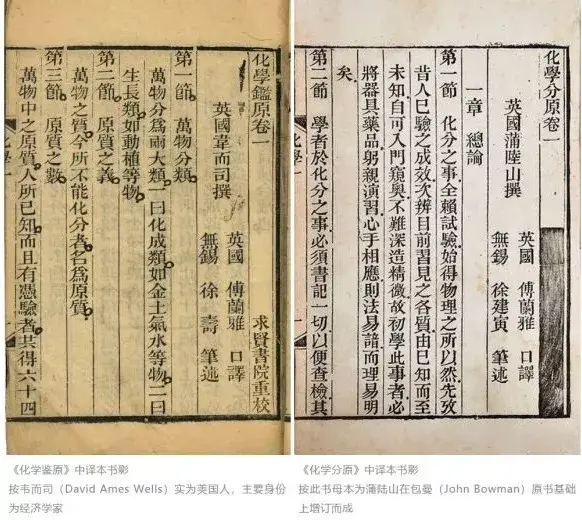 化學鑑原卷一
英國韋而司撰
英國 傅蘭雅 口譯
無錫 徐壽 筆述
求賢書院重校
第一節 萬物分類
萬物分爲兩大類一曰化成類如金土氣水等物二曰
生長類如動植等物
第二節 原質之義
萬物之質今所不能化分者名爲原質
第三節 原質之數
萬物中之原質人所已知而且有憑驗者共得六十四
化學一
化學分原卷一
英國蒲陸山撰
英國 傅蘭雅 口譯
無錫 徐建寅 筆述
一章 總論
第一節 化分之事全賴試驗始得物理之所以然先攷
昔人已驗之成效次辨目前習見之各質由已知而至
未知自可入門窺奧不難深造精微故初學此事者必
將器具藥品躬親演習心手相應則法易諳而理易明
矣
第二節 學者於化分之事必須書記一切以便查檢其
《化学鉴原》中译本书影
按韦而司（David Ames Wells）实为美国人，主要身份
为经济学家
《化学分原》中译本书影
按此书母本为蒲陆山在包曼（John Bowman）原书基础
上增订而成